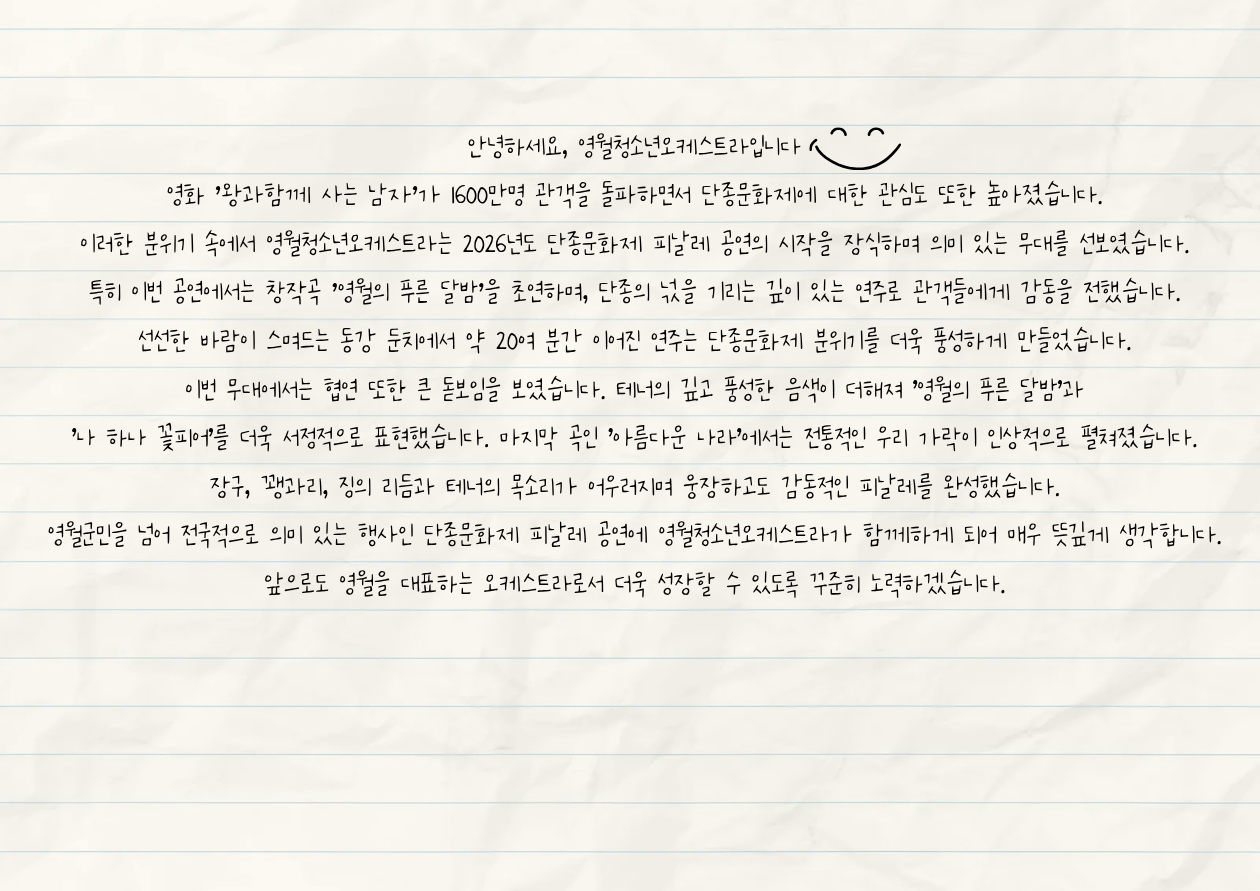 안녕하세요, 영월청소년오케스트라입니다
영화 '왕과함께 사는 남자'가 1600만명 관객을 돌파하면서 단종문화제에 대한 관심도 또한 높아졌습니다.
이러한 분위기 속에서 영월청소년오케스트라는 2026년도 단종문화제 피날레 공연의 시작을 장식하며 의미 있는 무대를 선보였습니다.
특히 이번 공연에서는 창작곡 '영월의 푸른 달밤'을 초연하며, 단종의 넋을 기리는 깊이 있는 연주로 관객들에게 감동을 전했습니다.
선선한 바람이 스며드는 동강 둔치에서 약 20여 분간 이어진 연주는 단종문화제 분위기를 더욱 풍성하게 만들었습니다.
이번 무대에서는 협연 또한 큰 돋보임을 보였습니다. 테너의 깊고 풍성한 음색이 더해져 '영월의 푸른 달밤'과
'나 하나 꽃피어'를 더욱 서정적으로 표현했습니다. 마지막 곡인 '아름다운 나라'에서는 전통적인 우리 가락이 인상적으로 펼쳐졌습니다.
장구, 꽹과리, 징의 리듬과 테너의 목소리가 어우러지며 웅장하고도 감동적인 피날레를 완성했습니다.
영월군민을 넘어 전국적으로 의미 있는 행사인 단종문화제 피날레 공연에 영월청소년오케스트라가 함께하게 되어 매우 뜻깊게 생각합니다.
앞으로도 영월을 대표하는 오케스트라로서 더욱 성장할 수 있도록 꾸준히 노력하겠습니다.